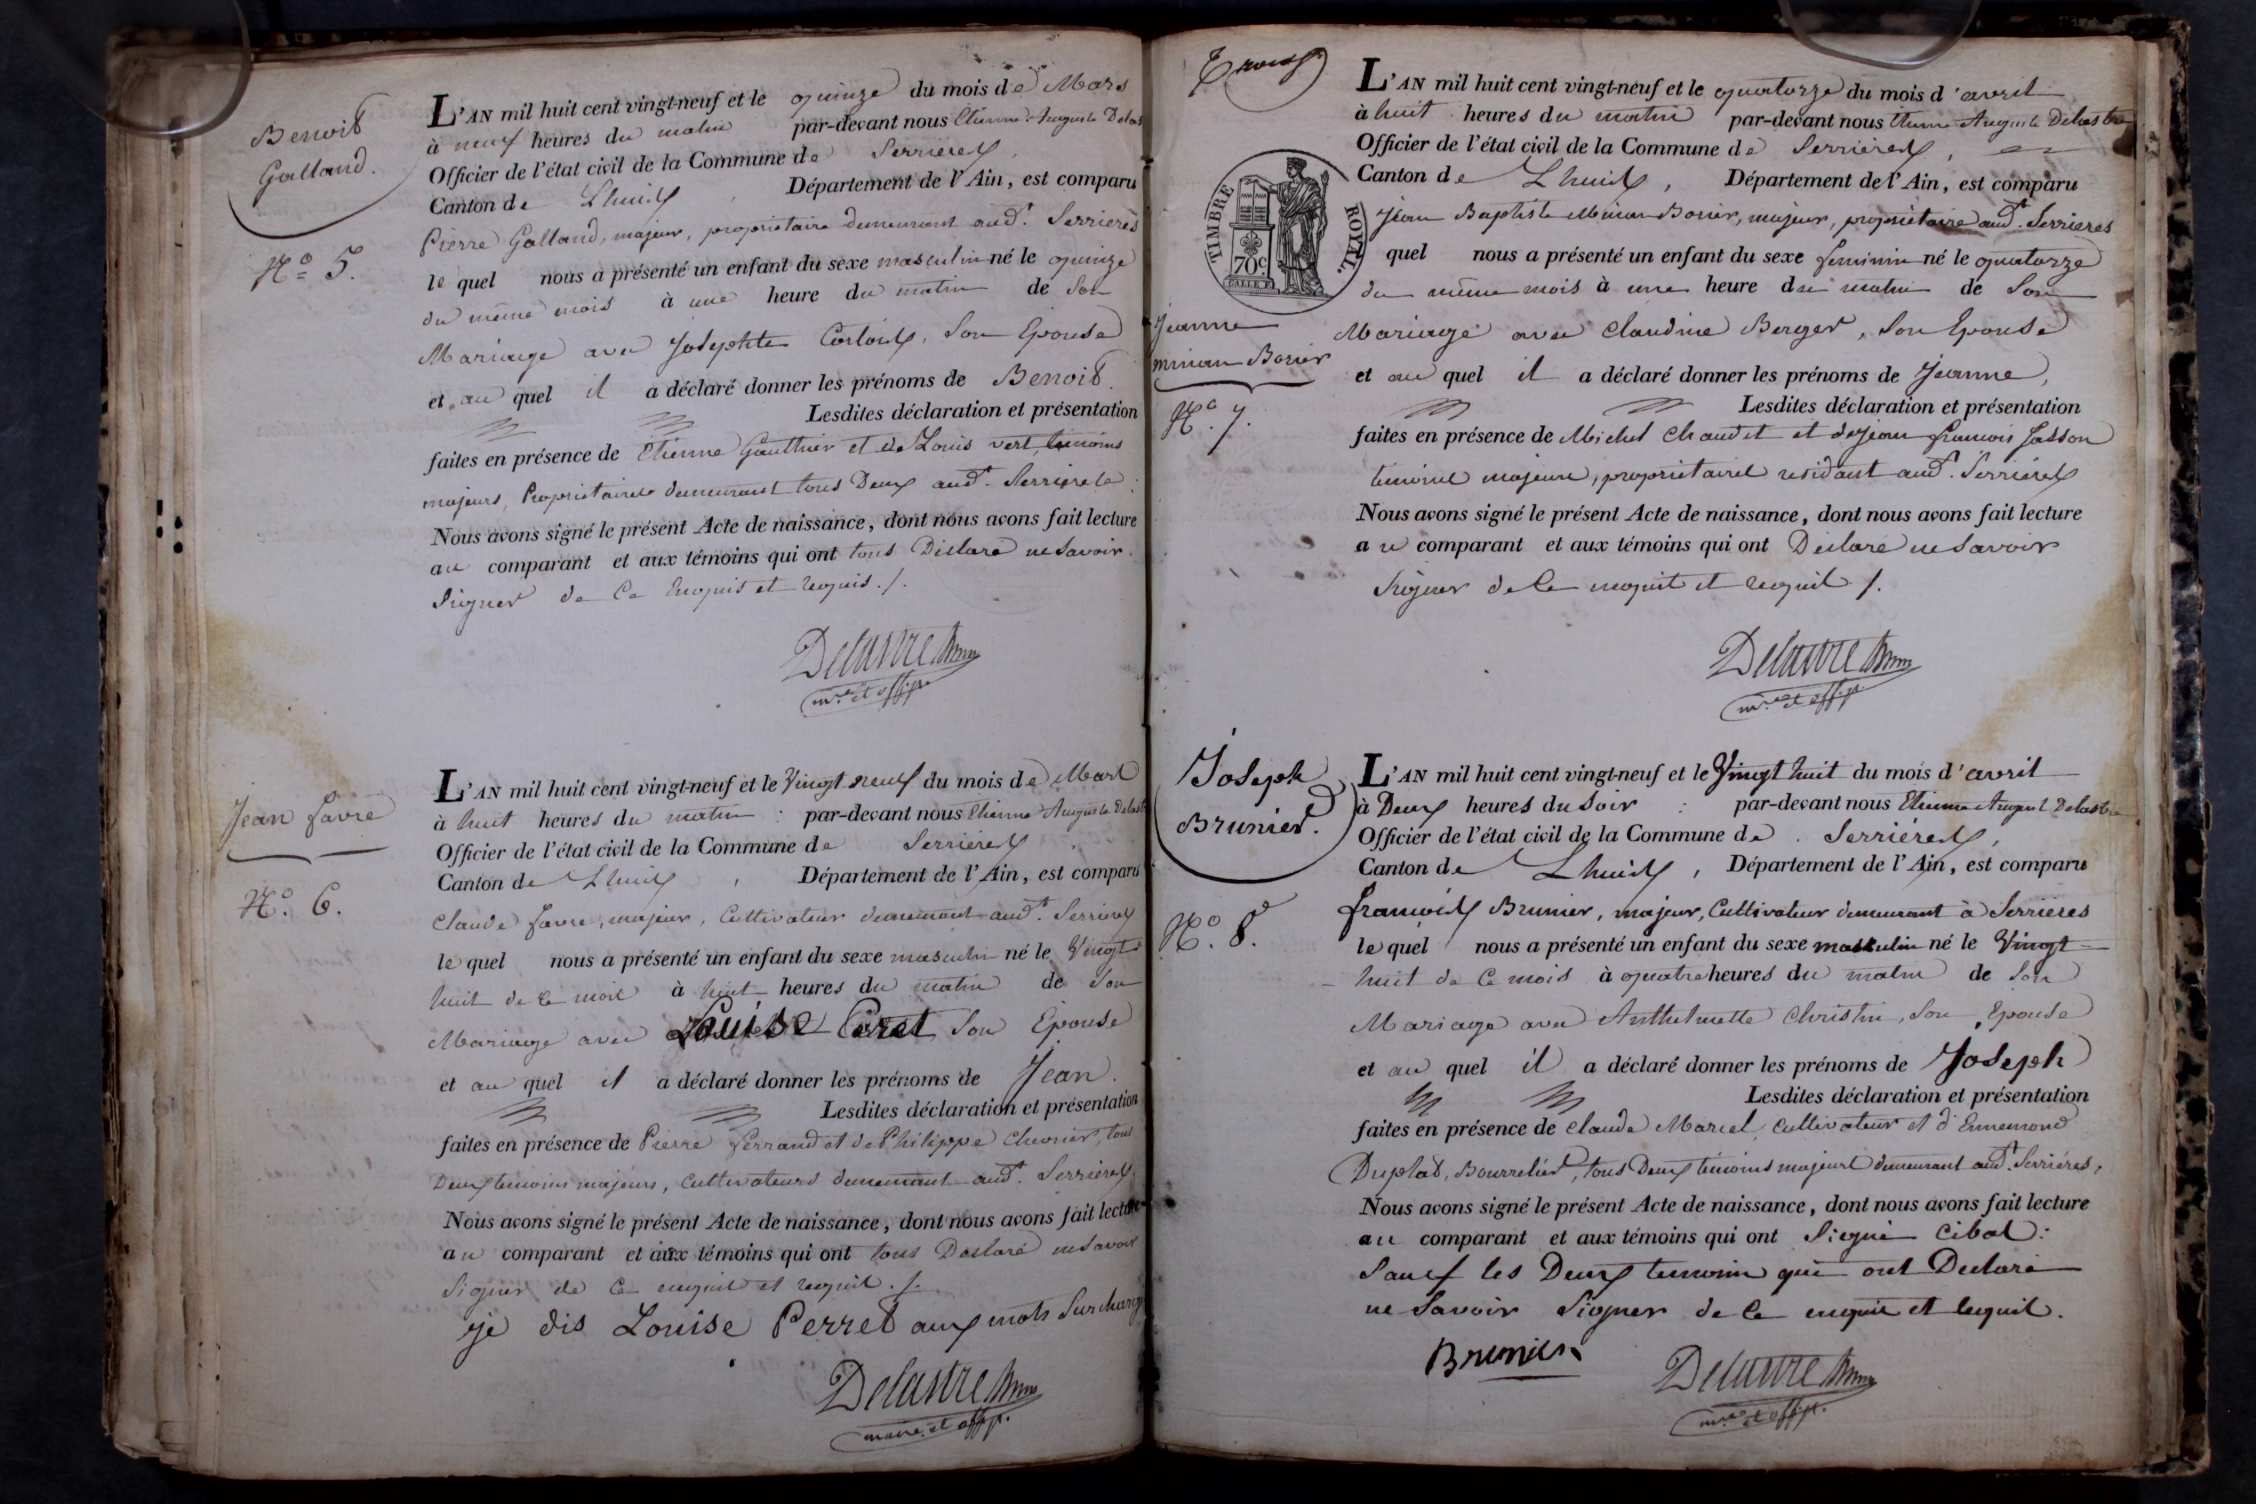 Benoit
Galland.
N.º 5.
L'AN mil huit cent vingt-neuf et le quinze du mois de Mars
à neuf heures du matin par-devant nous Etienne Auguste Delast
Officier de l'état civil de la Commune de Serrieres,
Canton de Lhuis, Département de l'Ain, est comparu
Pierre Galland, majeur, propriétaire demeurant aud.t Serrieres
le quel nous a présenté un enfant du sexe masculin né le quinze
du même mois à une heure du matin de son
Mariage avec Josephte, Son Epouse
et au quel il a déclaré donner les prénoms de Benoit.
Lesdites déclaration et présentation
faites en présence de Etienne Gauthier et de Louis vert, temoins
majeurs, Propriétaires demeurant tous Deux aud.t Serrieres.
Nous avons signé le présent Acte de naissance, dont nous avons fait lecture
au comparant et aux témoins qui ont tous Déclaré ne Savoir
Signer de Ce Enquis et requis./.
Delastre
m.re et off.
Jean favre
N.º 6.
L'AN mil huit cent vingt-neuf et le Vingt neuf du mois de Mars
à huit heures du matin : par-devant nous Etienne Auguste Delast
Officier de l'état civil de la Commune de Serrieres
Canton de Lhuis, Département de l'Ain, est comparu
Claude favre, majeur, Cultivateur demeurant aud.t Serrieres
le quel nous a présenté un enfant du sexe masculin né le Vingt
huit de ce mois à huit heures du matin de Son
Mariage avec Louise Perret Son Epouse
et au quel il a déclaré donner les prénoms de Jean.
Lesdites déclaration et présentation
faites en présence de Pierre ferrand et de Philippe, tous
Deux temoins majeurs, cultivateurs demeurant aud.t Serrieres,
Nous avons signé le présent Acte de naissance, dont nous avons fait lecture
au comparant et aux témoins qui ont tous Déclaré ne Savoir
Signer de Ce enquis et requis ./.
je dis Louise Perret aux mots Surchargé
Delastre
maire et off.
Trois
TIMBRE ROYAL
70c
Jeanne
minan Borier
N.º 7.
L'AN mil huit cent vingt-neuf et le quatorze du mois d'avril
à huit heures du matin par-devant nous Etienne Auguste Delastre
Officier de l'état civil de la Commune de Serrieres,
Canton de Lhuis, Département de l'Ain, est comparu
Jean Baptiste Minan Borier, majeur, propriétaire aud.t Serrieres
quel nous a présenté un enfant du sexe feminin né le quatorze
du même mois à une heure du matin de Son
Mariage avec Claudine Berger, Son Epouse
et au quel il a déclaré donner les prénoms de Jeanne,
Lesdites déclaration et présentation
faites en présence de Michel Chaudet et de Jean françois Jasson
temoins majeurs, propriétaires residant aud.t Serrieres
Nous avons signé le présent Acte de naissance, dont nous avons fait lecture
au comparant et aux témoins qui ont Déclaré ne Savoir
Signer de Ce enquis et requis /.
Delastre
m.re et off.
Joseph
Brunier.
N.º 8.
L'AN mil huit cent vingt-neuf et le Vingt huit du mois d'avril
à Deux heures du Soir : par-devant nous Etienne August Delastre
Officier de l'état civil de la Commune de Serrieres,
Canton de Lhuis, Département de l'Ain, est comparu
françois Brunier, majeur, Cultivateur demeurant à Serrieres
le quel nous a présenté un enfant du sexe masculin né le Vingt
huit de Ce mois à quatre heures du matin de Son
Mariage avec Anthelmette Christin, Son Epouse
et au quel il a déclaré donner les prénoms de Joseph
Lesdites déclaration et présentation
faites en présence de Claude Marcel, Cultivateur et d'Ennemond
Duplat, Bourrelier, tous Deux témoins majeurs demeurant aud.t Serriéres,
Nous avons signé le présent Acte de naissance, dont nous avons fait lecture
au comparant et aux témoins qui ont Signé Cibas :
Sauf les Deux temoins qui ont Declaré
ne Savoir Signer de Ce enquis et requis.
Brunier
Delastre
m.re et off.